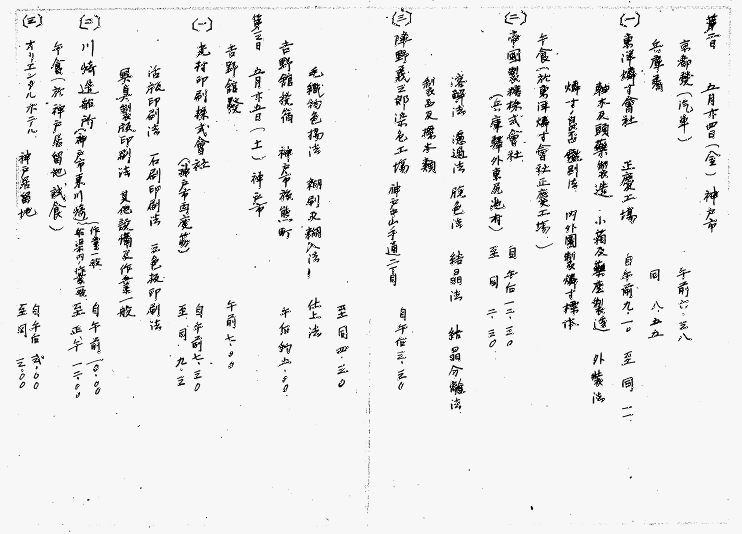 第二日　五月廿四日(金)　神戸市
京都發(汽車)　午前六.三八
兵庫着　同　八.五五
(一)　東洋燐寸會社　正慶工場　自午前九.一〇　至同　一一
軸木及頭藥製造　小箱及藥座製造　外裝法
燐寸良否鑑別法　内外國製燐寸標本
午食(於東洋燐寸會社正慶工場)
(二)　帝國製糖株式會社　自午后一二.三〇
(兵庫驛外東尻池村)　至同　二.三〇
溶解法　濾過法　脱色法　結晶法　結晶分離法
製品及標本類
(三)　陣野義三郎染色工場　神戸中山手通二丁目　自午后三.三〇
至同　四.三〇
毛織物色揚法　糊刷及糊入法　仕上法
吉野館投宿　神戸市熊町　午后約五.〇〇
第三日　五月廿五日(土)　神戸市
吉野館發　午前七.〇〇
(一)　光村印刷株式會社　自午前七.三〇
(神戸市)　至同　九.三
活版印刷法　石刷印刷法　三色板印刷法
寫真製版印刷法　其他設備及作業一般
(二)　川崎造船所(神戸市東川崎)　自午前一〇.〇〇
作業一般　至正午　一二.〇〇
午食(於神戸居留地試食)
(三)　オリエンタルホテル　神戸居留地　自午后　〇〇
至同　三.〇〇